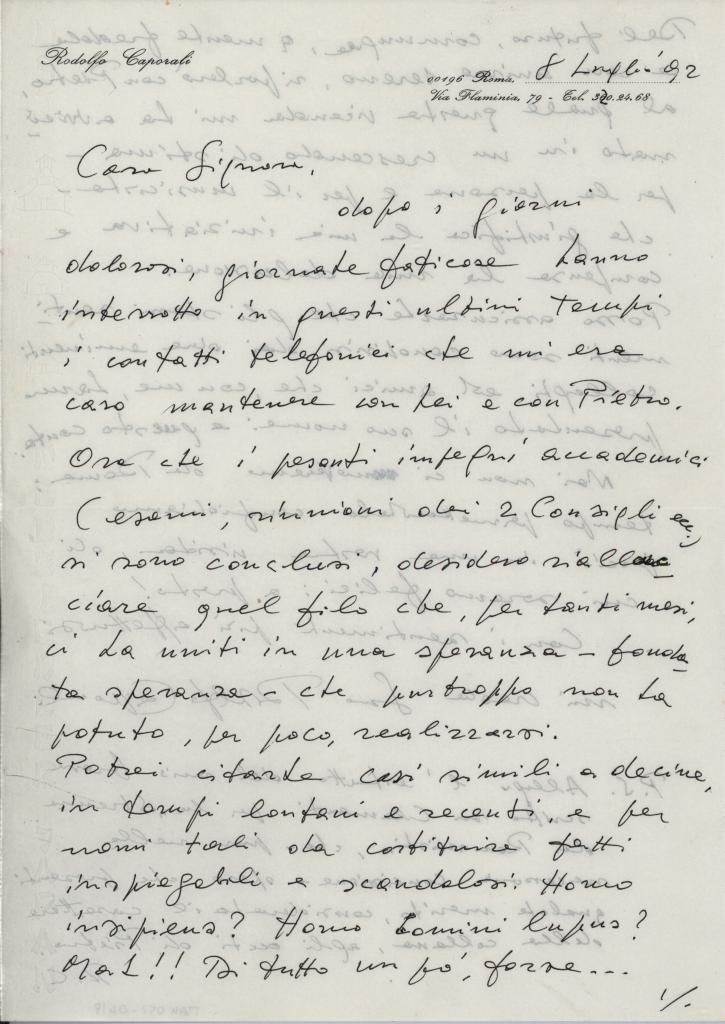 Rodolfo Caporali
00196 Roma, 8 Luglio 92
Via Flaminia, 79 - Tel. 320.24.68
Cara Signora,
dopo i giorni
dolorosi, giornate faticose hanno
interrotto in questi ultimi tempi
i contatti telefonici che mi era
caro mantenere con Lei e con Pietro.
Ora che i pesanti impegni accademici
(esami, riunioni dei 2 Consigli ecc.)
si sono conclusi, desidero riallac
ciare quel filo che, per tanti mesi,
ci ha uniti in una speranza - fonda
ta speranza - che purtroppo non ha
potuto, per poco, realizzarsi.
Potrei citarLe casi simili a decine,
in tempi lontani e recenti, e per
nomi tali da costituire fatti
inspiegabili e scandalosi. Homo
insipiens? Homo homini lupus?
Mah!! Di tutto un po', forse...
1/.